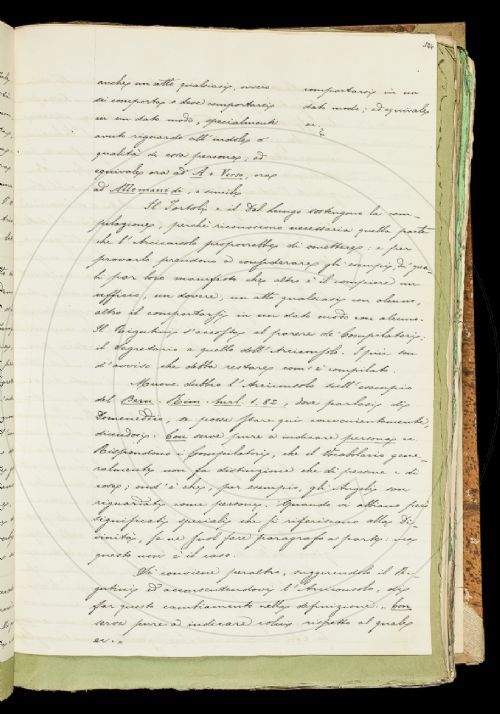 524
anche un atto qualsiasi, ovvero
si comporta o deve comportarsi
in un dato modo, specialmente
avuto riguardo all'indole o
qualità di essa persona; ed
equivale ora ad A o Verso, ora
ad Alla maniera di, o simile
comportarsi in un
dato modo; ed equivale
ec.
Il Tortoli e il Dal Lungo sostengono la com-
pilazione, perchè riconoscono necessaria quella parte
che l'Arciconsolo proporrebbe di omettere: e per
provarlo prendono a considerare gli esempi, di' qua-
li par loro manifesto che altro è il compiere un
ufficio, un dovere, un atto qualsiasi con alcuno,
altro il comportarsi in un dato modo con alcuno.
Il Rigutini s'accosta al parere de' Compilatori;
il Segretario a quello dell'Arciconsolo. I più son
d'avviso che debba restare com'è compilato.
Muove dubbio l'Arciconsolo sull'esempio
del Bern. Rim. burl. 1, 82, dove parlasi di
Domeneddio, se possa stare qui convenientemente,
dicendosi: Con serve pure a indicare persona ec.
Rispondono i Compilatori, che il Vocabolario gene-
ralmente non fa distinzione che di persone e di
cose; ond'è che, per esempio, gli Angeli son
riguardati come persone. Quando vi abbiano poi
significati speciali che si riferiscano alla Di-
vinità, se ne può fare paragrafo a parte: ma
questo non è il caso.
Si conviene peraltro, suggerendolo il Ri-
gutini ed acconsentendovi l'Arciconsolo, di
far questo cambiamento nella definizione: Con
serve pure a indicare colui rispetto al quale
ec.